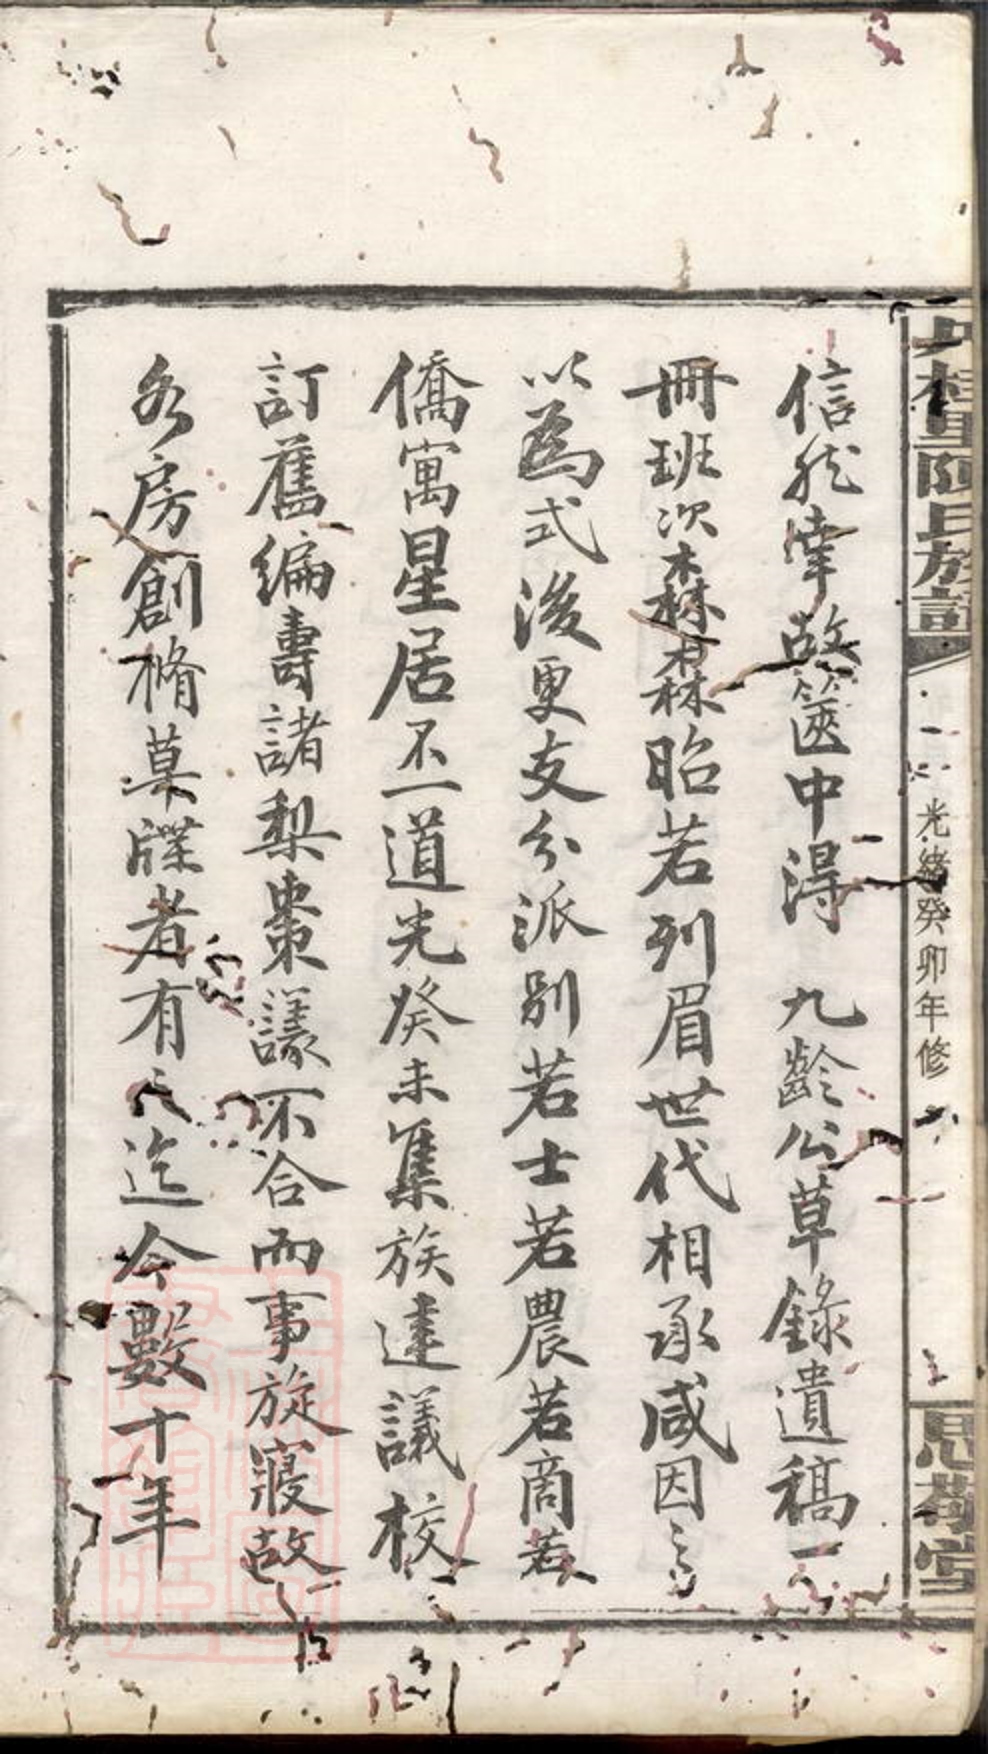 丹桂里陳氏族譜
光緒癸卯年修
思敬堂
信然幸故篋中淂　九齡公草錄遺稿一
冊班次森森森昭若列眉世代相承咸因之
以為式後更支分派别若士若農若商若
僑寓星居不一道光癸未集族達議校
訂舊編壽諸梨棗議不合而事旋寢故
各房創脩草牒者有之迄今數十年